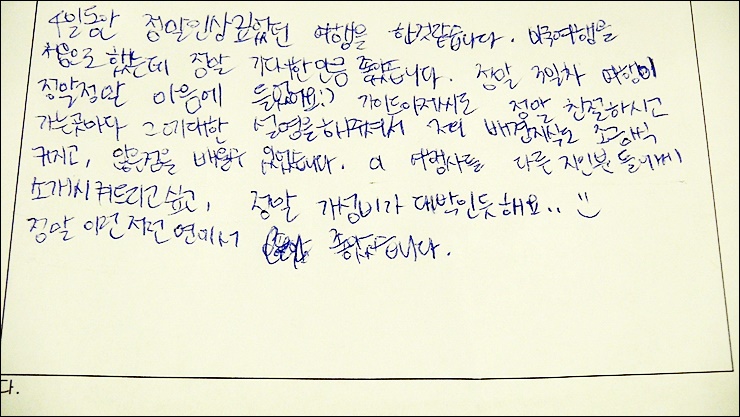 4일동안 정말인상깊었던 여행을 한것같습니다. 미국여행을
처음으로 했는데 정말 기대한만큼 좋았습니다. 정말 3일차 여행이
정말정말 마음에 들었어요:) 가이드아저씨도 정말 친절하시고
가는곳마다 그에대한 설명을해주셔서 저의 배경지식도 조금씩
커지고, 많은점을 배울수 있었습니다. 이 여행사를 다른 지인분들에게
소개시켜드리고싶고, 정말 가성비가 대박인듯해요..
정말 이런저런 면에서 좋았습니다.
다.